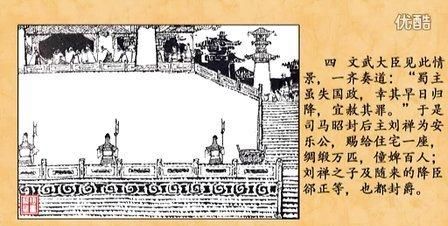 优酷
四 文武大臣见此情
景，一齐奏道：“蜀主
虽失国政，幸其早日归
降，宜赦其罪。”于是
司马昭封后主刘禅为安
乐公，赐给住宅一座，
绸缎万匹，僮婢百人；
刘禅之子及随来的降臣
郤正等，也都封爵。